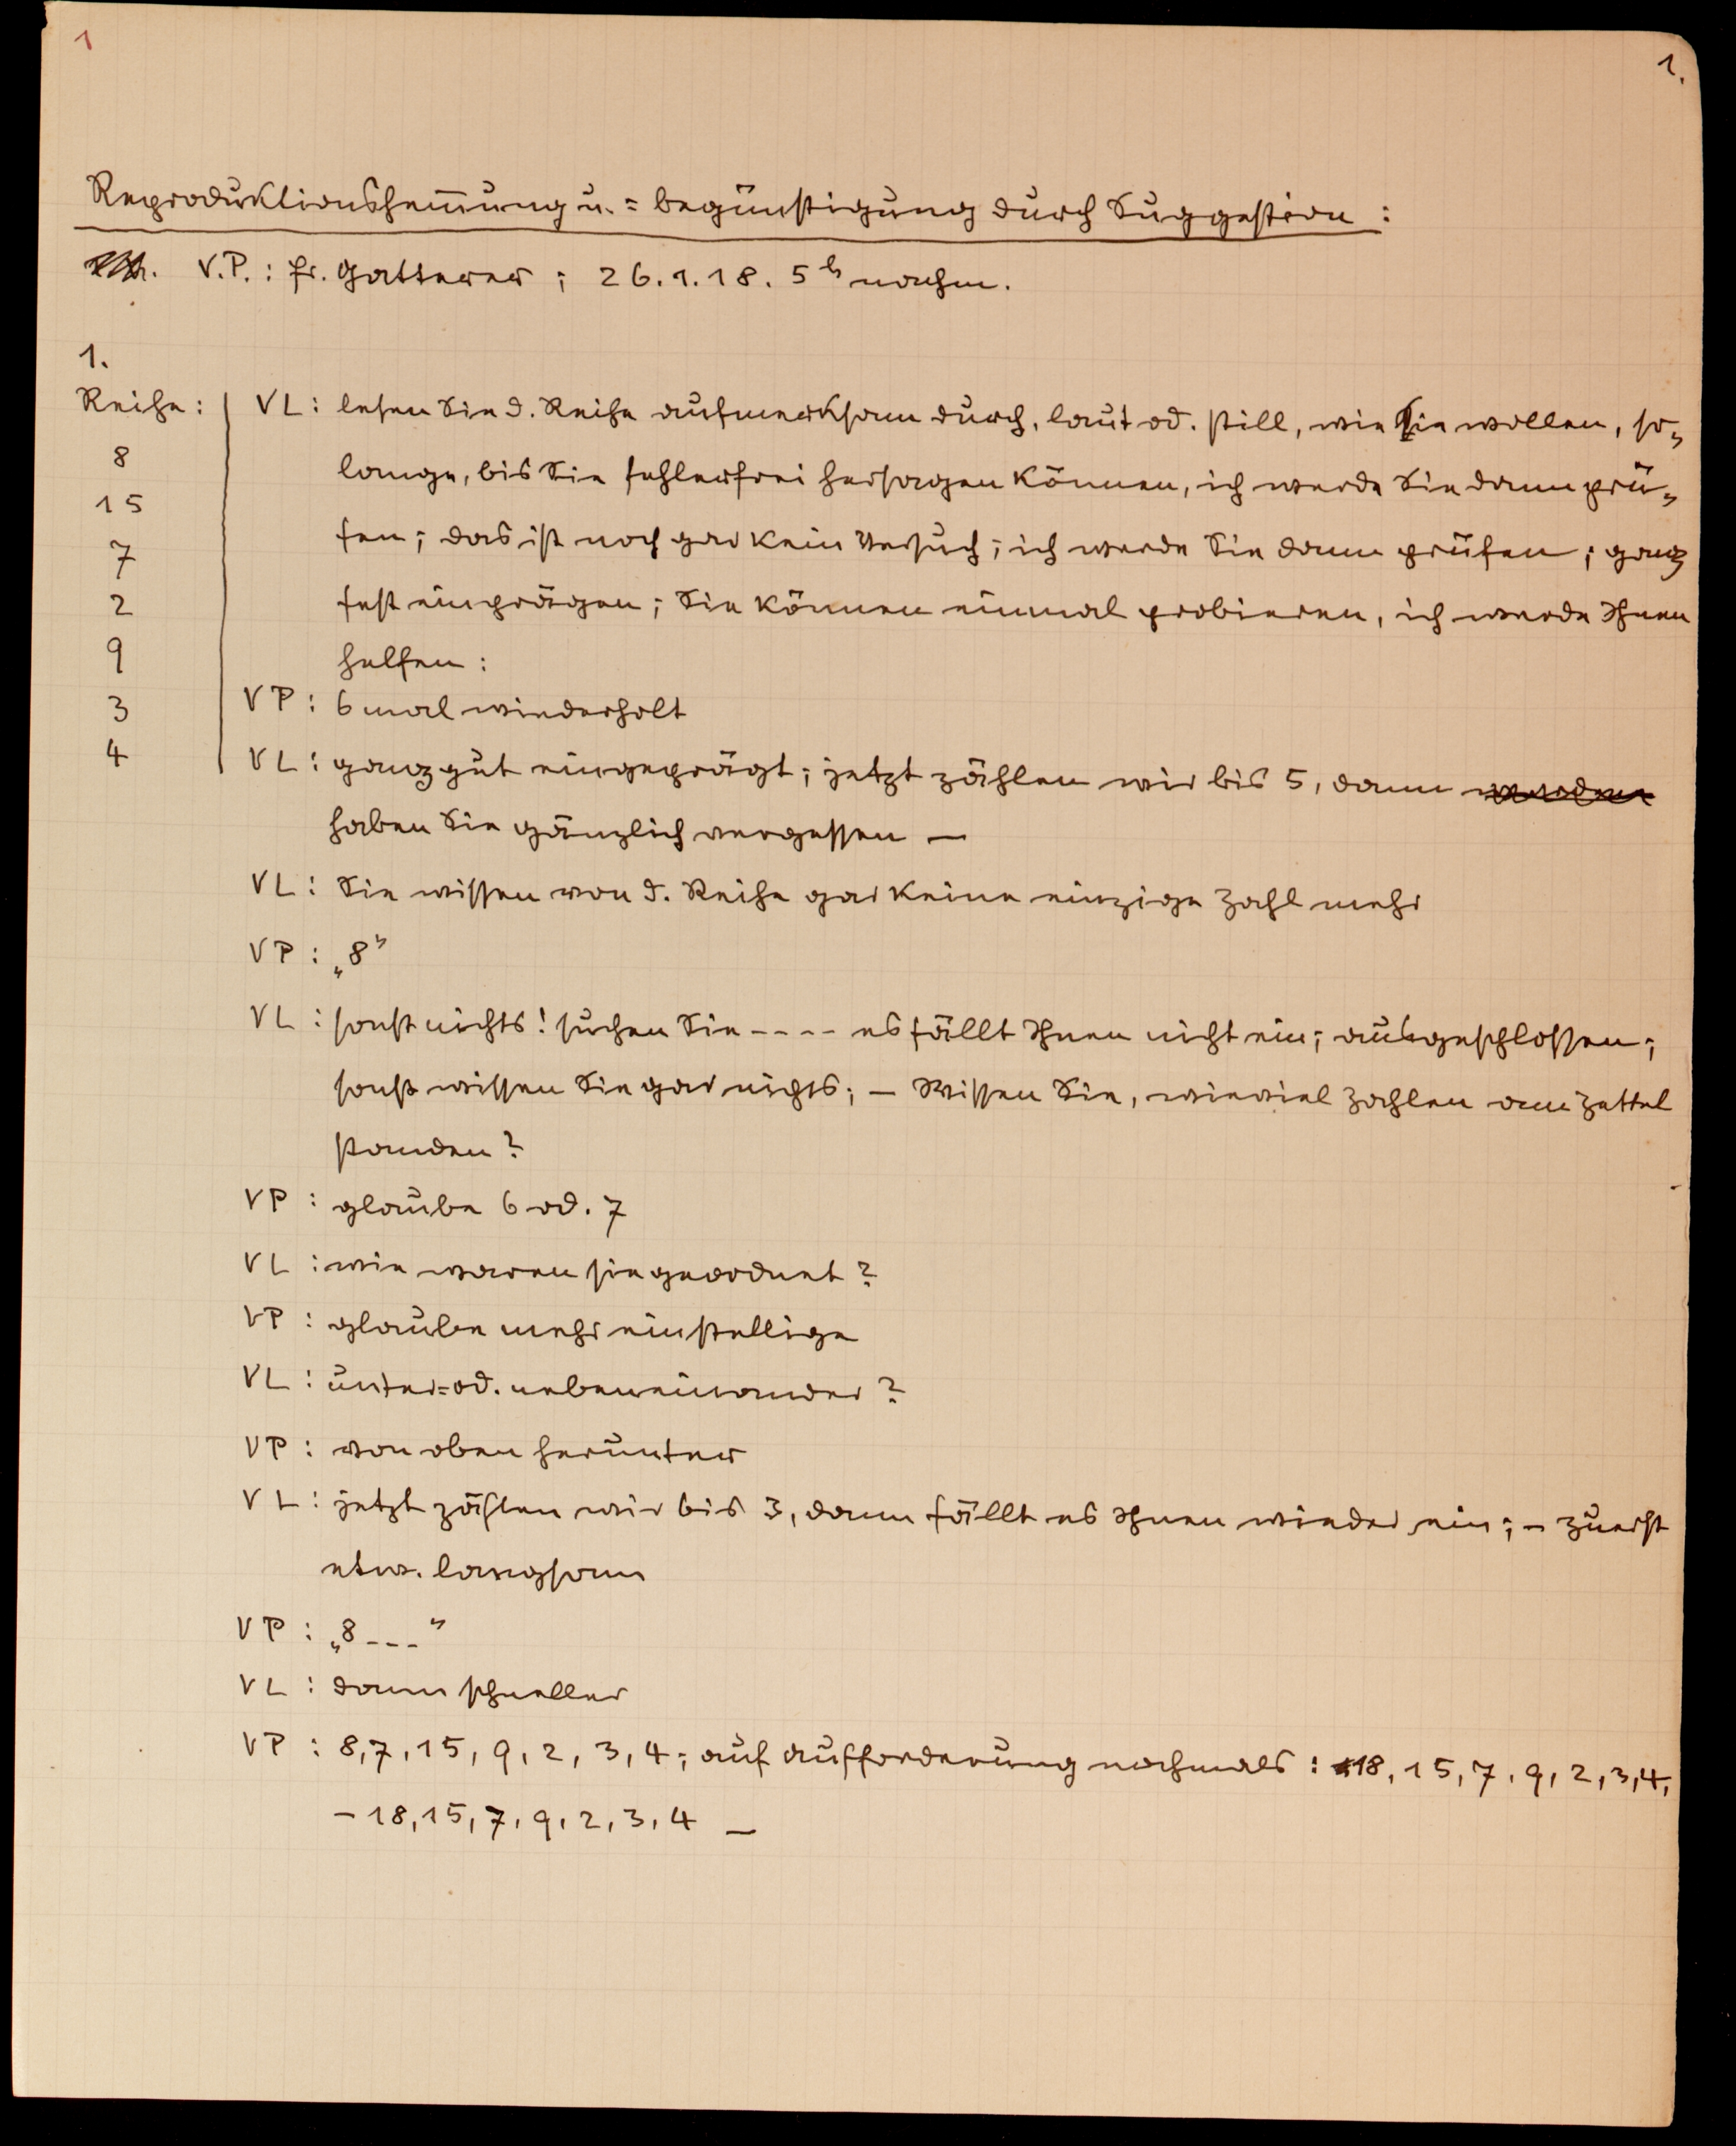 1
1.
Reproduktionshem̄ung u. = begünstigung durch Suggestion :
V.P. : Fr. Gatterer ; 26.1.18. 5h nachm.
1.
Reihe :
8
15
7
2
9
3
4
VL : lesen Sie d. Reihe aufmerksam durch, laut od. still, wie Sie wollen, so=
lange, bis Sie fehlerfrei hersagen können, ich werde Sie dann prü=
fen ; das ist noch gar kein Versuch ; ich werde Sie dann prüfen ; ganz
fest einprägen ; Sie können einmal probieren, ich werde Ihnen
helfen :
VP : 6 mal wiederholt
VL : ganz gut eingeprägt ; jetzt zählen wir bis 5, dann werden
haben Sie gänzlich vergessen —
VL : Sie wissen von d. Reihe gar keine einzige Zahl mehr
VP : „8“
VL : sonst nichts ! suchen Sie ---- es fällt Ihnen nicht ein ; ausgeschlossen ;
sonst wissen Sie gar nichts ; — Wissen Sie, wieviel Zahlen am Zettel
standen ?
VP : glaube 6 od. 7
VL : wie waren sie geordnet ?
VP : glaube mehr einstellige
VL : unter= od. nebeneinander ?
VP : von oben herunter
VL : jetzt zählen wir bis 3, dann fällt es Ihnen wieder ein ; – zuerst
etw. langsam
VP : „8 --- “
VL : dann schneller
VP : 8, 7, 15, 9, 2, 3, 4 ; auf Aufforderung nochmals : 18, 15, 7, 9, 2, 3, 4,
– 18, 15, 7, 9, 2, 3, 4 —